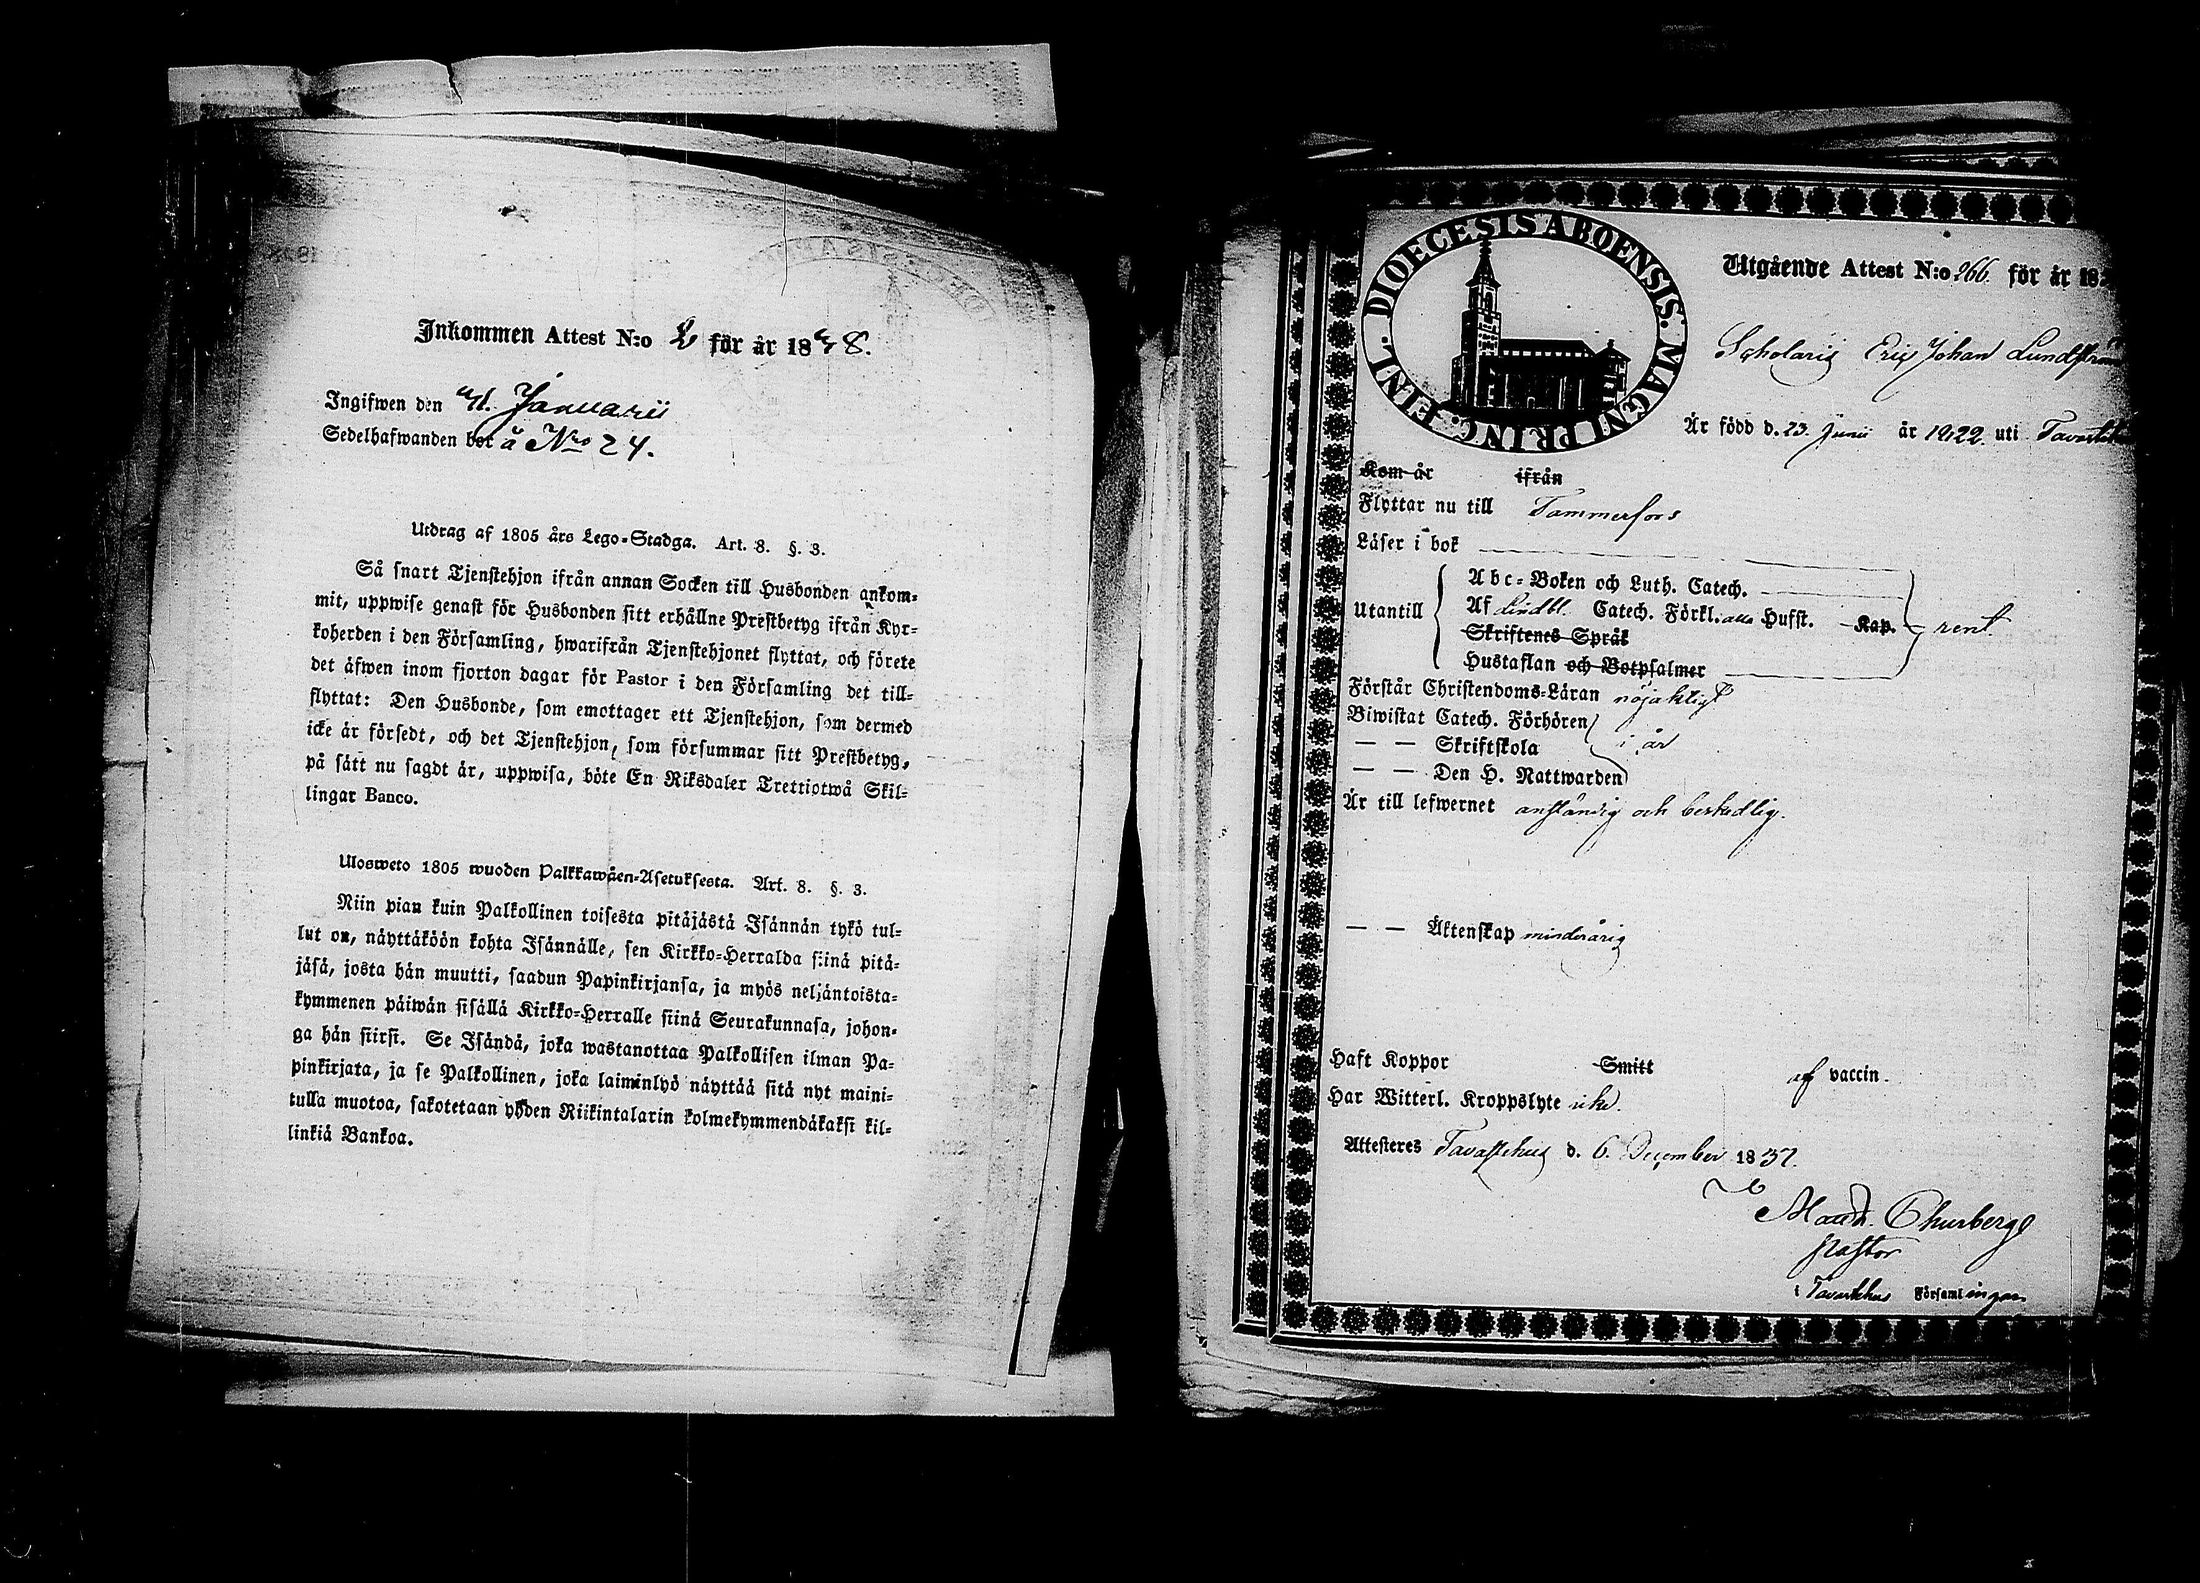 Inkommen Attest N:o 2 för år 1838.
Ingifwen den 4. Januarii
Sedelhafwanden bor å Nro 24.
Utdrag af 1805 års Lego-Stadga. Art. 8. §. 3.
Så snart Tjenstehjon ifrån annan Socken till Husbonden ankom-
mit, uppwise genast för Husbonden sitt erhållne Prestbetyg ifrån Kyr-
koherden i den Församling, hwarifrån Tjenstehjonet flyttat, och förete
det äfwen inom fjorton dagar för Pastor i den Församling det till-
flyttat: Den Husbonde, som emottager ett Tjenstehjon, som dermed
icke är försedt, och det Tjenstehjon, som försummar sitt Prestbetyg,
på sätt nu sagdt är, uppwisa, böte En Riksdaler Trettiotwå Skil-
lingar Banco.
Ulosweto 1805 wuoden Palkkawäen-Asetuksesta. Art. 8. §. 3.
Niin pian kuin Palkollinen toisesta pitäjästä Isännän tykö tul-
lut on, näyttäköön kohta Isännälle, sen Kirkko-Herralda siinä pitä-
jäsä, josta hän muutti, saadun Papinkirjansa, ja myös neljäntoista-
kymmenen päiwän sisällä Kirkko-Herralle siinä Seurakunnasa, johon-
ga hän siirsi. Se Isändä, joka wastanottaa Palkollisen ilman Pa-
pinkirjata, ja se Palkollinen, joka laiminlyö näyttää sitä nyt maini-
tulla muotoa, sakotetaan yhden Riikintalarin kolmekymmendäkaksi kil-
linkiä Bankoa.
DIOECESIS ABOENSIS. MAGNI PRINC. FINL.
Utgående Attest N:o 266. för år 18
Scholaris Eric Johan Lundström
Är född d. 23 Junii år 1822 uti Tavastehus
Kom år ifrån
Flyttar nu till Tammerfors
Läser i bok
Utantill
Abc-Boken och Luth. Catech.
Af Lindbl. Catech. Förkl. alla Hufst. Kap. rent
Skriftenes Språk
Hustaflan och Botpsalmer
Förstår Christendoms-Läran nöjaktigt
Biwistat Catech. Förhören
— — Skriftskola i år
— — Den H. Nattwarden
Är till lefwernet anständig och beskedlig.
— — Äktenskap minderårig
Haft Koppor Smitt af vaccin.
Har Witterl. Kroppslyte icke.
Attesteres Tavastehus d. 6. December 1837.
Churberg
Pastor
i Tavastehus Församlingar